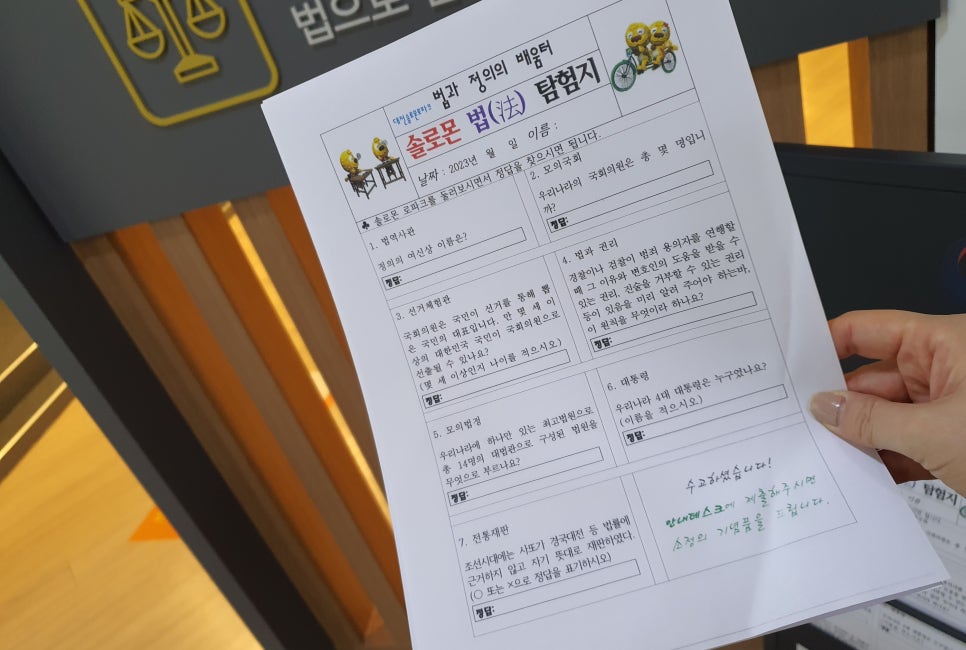 법으로
법과 정의의 배움터
대전솔로몬로파크
솔로몬 법(法) 탐험지
날짜 : 2023년 월 일 이름 :
♣ 솔로몬 로파크를 둘러보시면서 정답을 찾으시면 됩니다.
1. 법역사관
정의의 여신상 이름은?
정답:
2. 모의국회
우리나라의 국회의원은 총 몇 명입니
까?
정답:
3. 선거체험관
국회의원은 국민이 선거를 통해 뽑
은 국민의 대표입니다. 만 몇 세 이
상의 대한민국 국민이 국회의원으로
선출될 수 있나요?
(몇 세 이상인지 나이를 적으시오)
정답:
4. 법과 권리
경찰이나 검찰이 범죄 용의자를 연행할
때 그 이유와 변호인의 도움을 받을 수
있는 권리, 진술을 거부할 수 있는 권리
등이 있음을 미리 알려 주어야 하는바,
이 원칙을 무엇이라 하나요?
정답:
5. 모의법정
우리나라에 하나만 있는 최고법원으로
총 14명의 대법관으로 구성된 법원을
무엇으로 부르나요?
정답:
6. 대통령
우리나라 4대 대통령은 누구였나요?
(이름을 적으시오)
정답:
7. 전통재판
조선시대에는 사또가 경국대전 등 법률에
근거하지 않고 자기 뜻대로 재판하였다.
(○ 또는 ×으로 정답을 표기하시오)
정답:
수고하셨습니다!
안내데스크에 제출해주시면
소정의 기념품을 드립니다.
탐험지